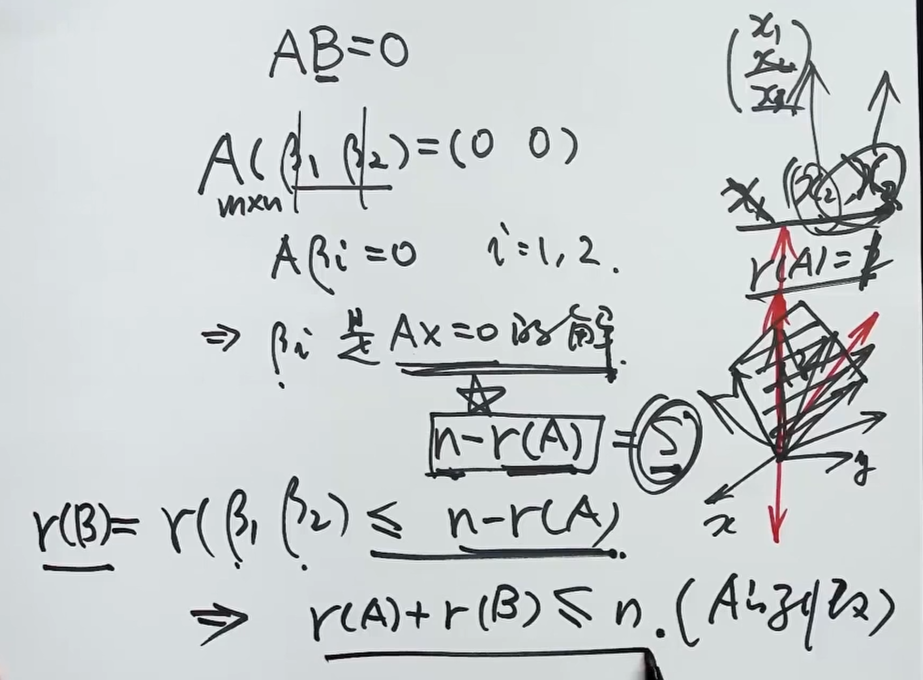 AB=0
A(β₁ β₂)=(0 0)
m×n
Aβi=0 i=1,2.
⇒ βi 是 Ax=0的解.
n-r(A) = S
r(B)= r(β₁ β₂) ≤ n-r(A).
⇒ r(A)+r(B) ≤ n. (A的列数)
x₁
x₂
x₃
x₁ x₂ x₃
r(A)=
y
x